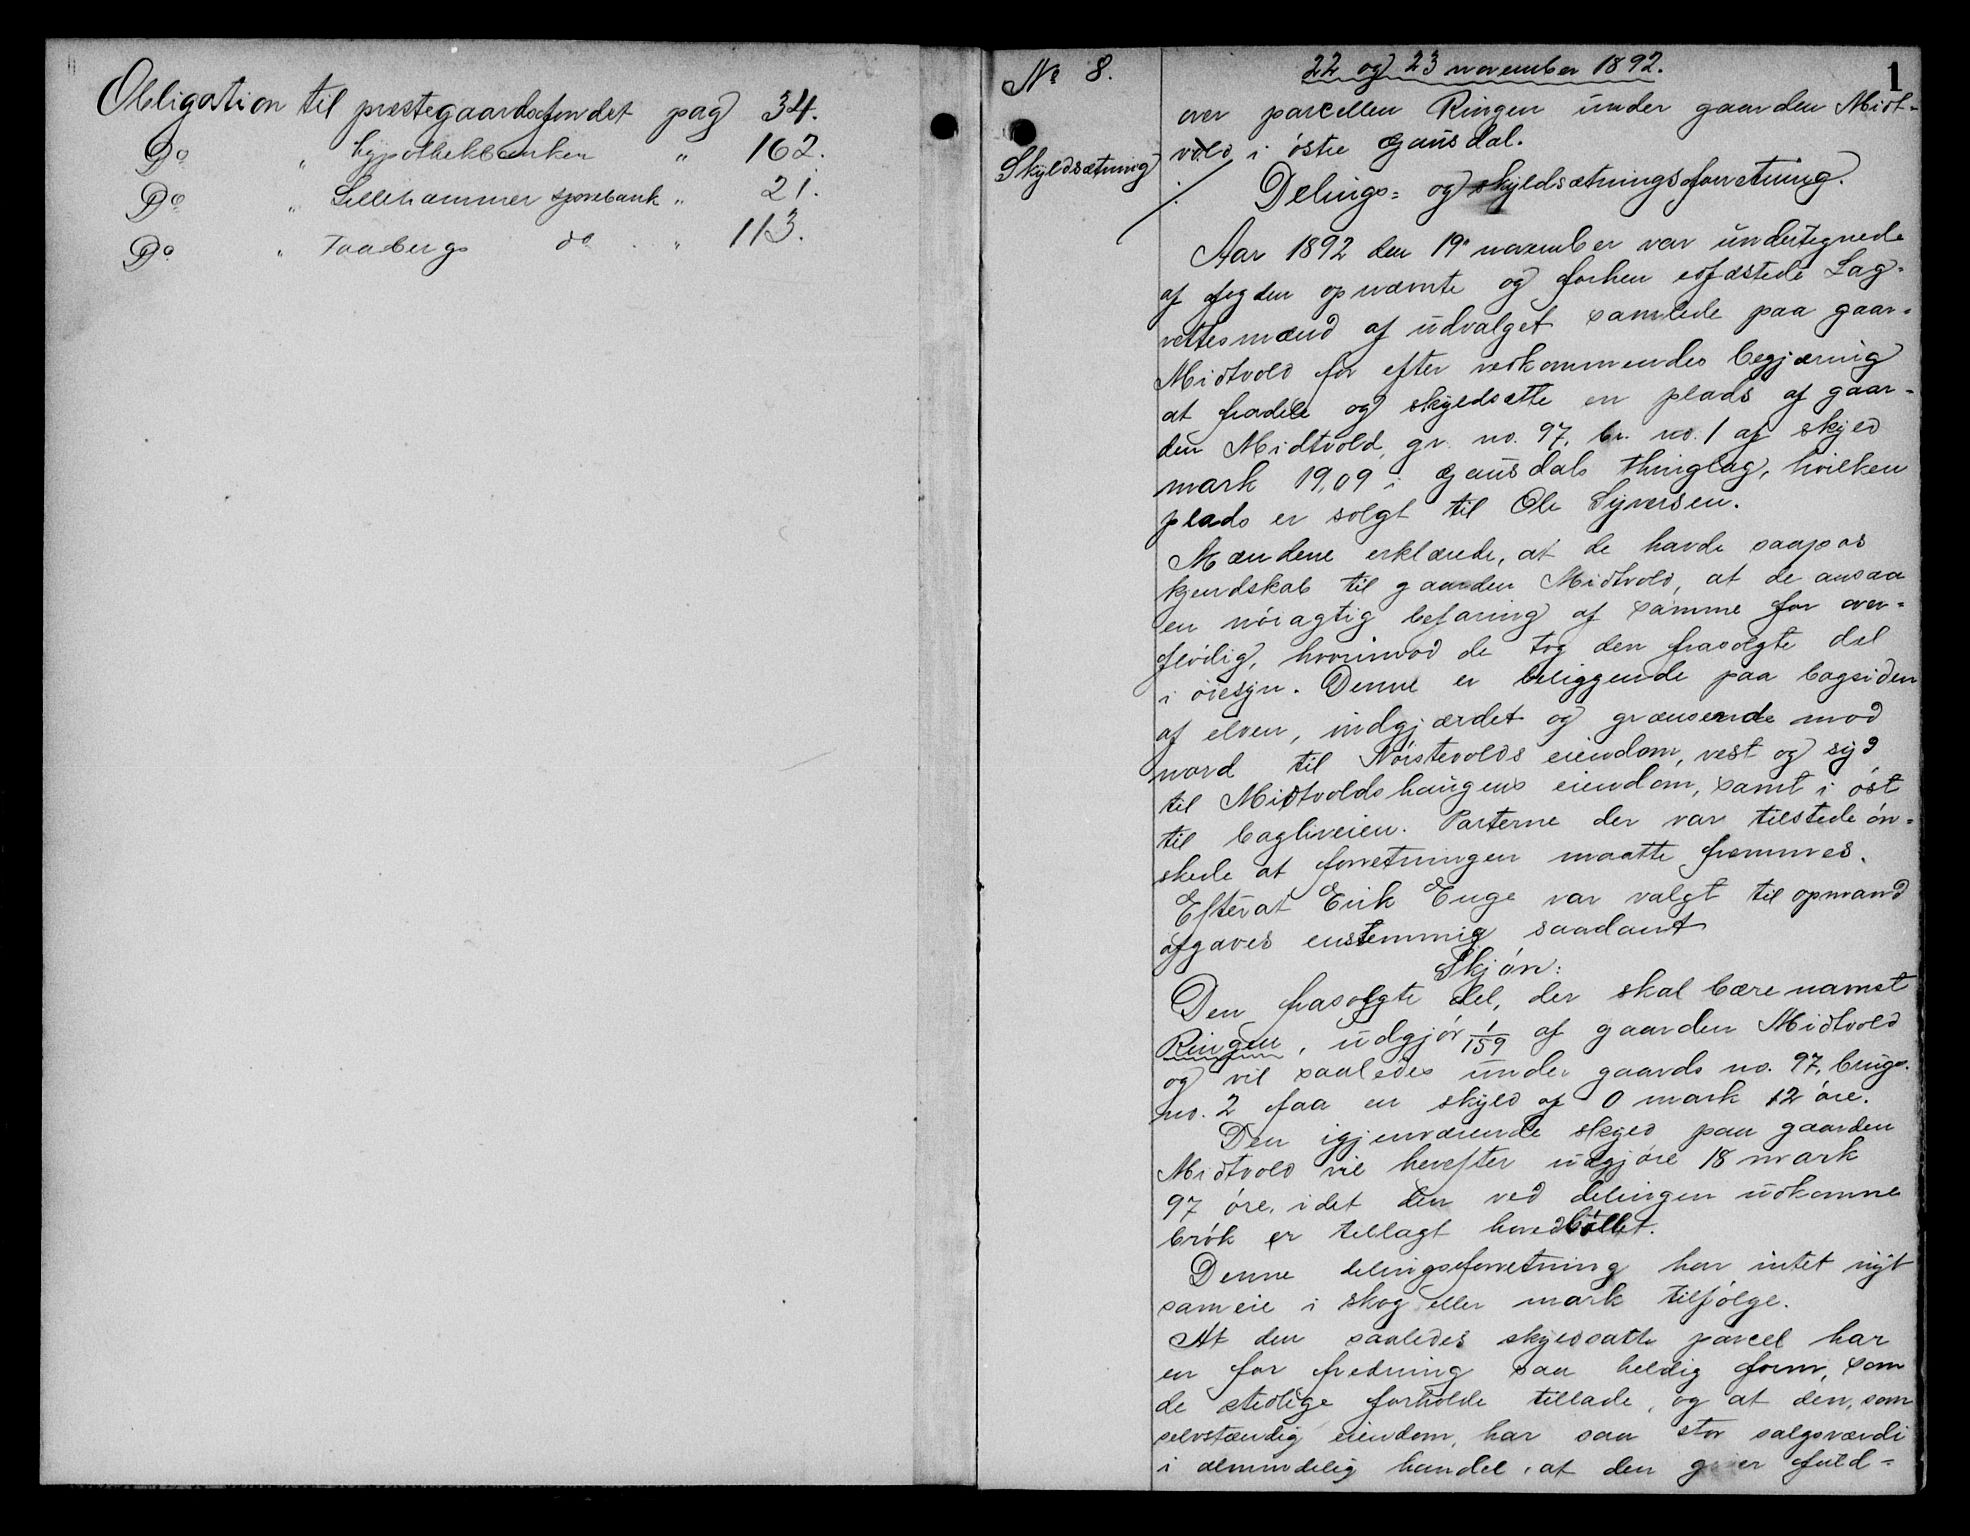 Obligation til præstegaardsfondet pag 34.
Do " hypothekbanken " 162.
Do " Lillehammer sparebank " 21.
Do " Faabergs do " 113.
No 8.
22 og 23 november 1892.
1
over parcellen Ringen under gaarden Midt-
vold i østre Gausdal.
Skyldsætning
Delings- og skyldsætningsforretning.
Aar 1892 den 19 november var undertegnede
af fogden opnævnte og forhen edfæstede Lag-
rettesmænd af udvalget samlede paa gaar-
Midtvold for efter vedkommendes begjæring
at fradele og skyldsætte en plads af gaar-
den Midtvold, gr. no. 97, br. no. 1 af skyld
mark 19,09 i Gausdals thinglag, hvilken
plads er solgt til Ole Syversen.
Mændene erklærede, at de havde saapas
kjendskab til gaarden Midtvold, at de ansaa
en nöiagtig befaring af samme for over-
flödig, hvorimod de tog den frasolgte del
i öiesyn. Denne er beliggende paa bagsiden
af elven, indgjærdet og grænsende mod
nord til Nörstevolds eiendom, vest og syd
til Midtvoldshaugens eiendom, samt i öst
til bagliveien. Parterne der var tilstede ön-
skede at forretningen maatte fremmes.
Efterat Erik Enge var valgt til opmand
afgaves enstemmig saadant
Skjön:
Den frasolgte del, der skal bære navnet
Ringen, udgjör 1/159 af gaarden Midtvold
og vil saaledes under gaards no. 97, brugs
no. 2 faa en skyld af 0 mark 12 öre.
Den igjenværende skyld paa gaarden
Midtvold vil herefter udgjöre 18 mark
97 öre, idet den ved delingen udkomne
brök er tillagt hovedböllet.
Denne delingsforretning har intet nyt
sameie i skog eller mark tilfölge.
At den saaledes skyldsatte parcel har
en for fredning saa heldig form, som
de stedlige forholde tillade, og at den, som
selvstændig eiendom, har saa stor salgsværdi
i almindelig handel, at den giver fuld-